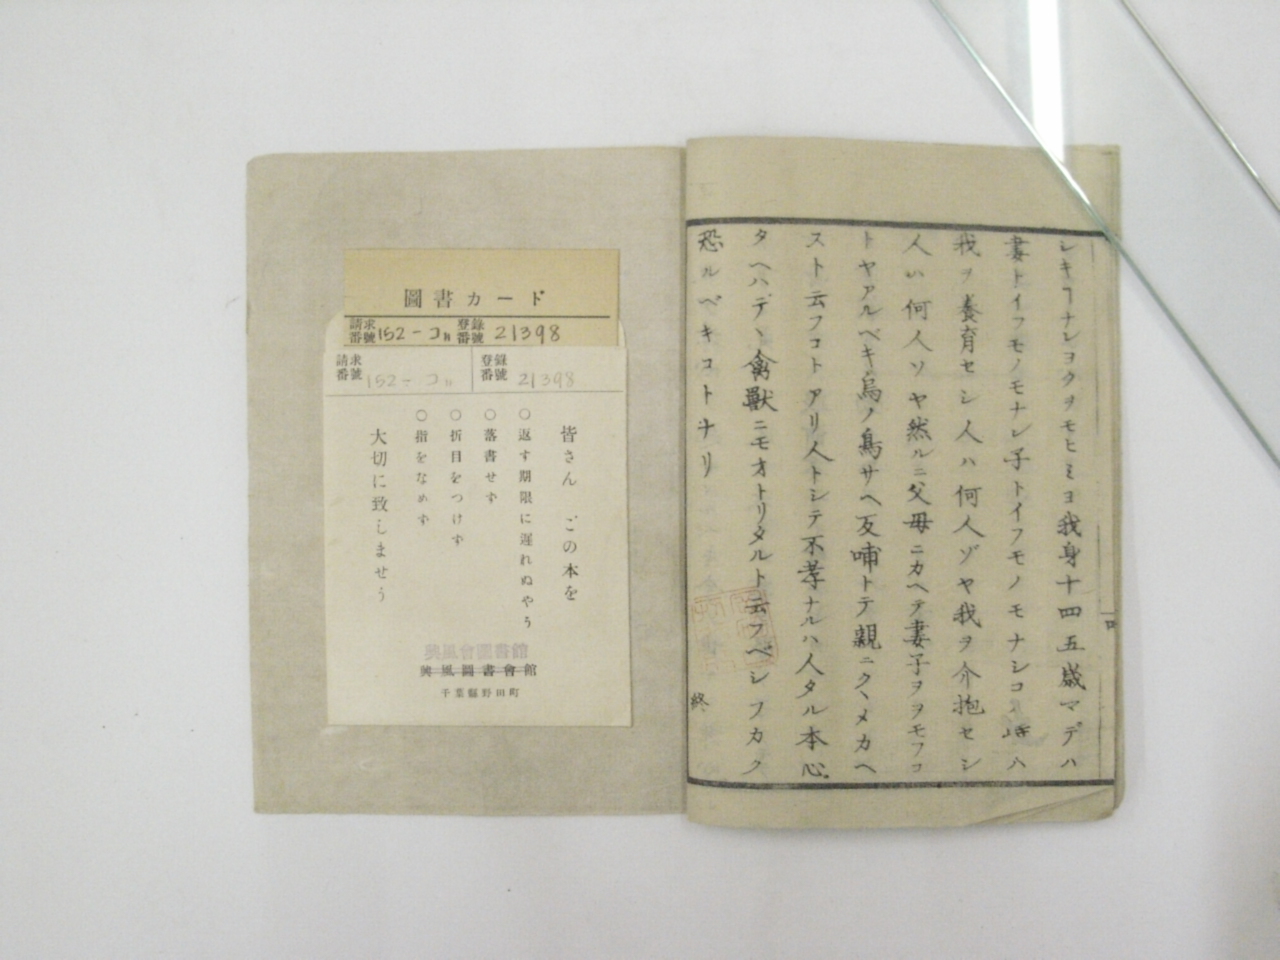 シキコナシヨクヲモヒミヨ我身十四五歳マデハ
妻トイフモノモナシ子トイフモノモナシコノ時ハ
我ヲ養育セシ人ハ何人ゾヤ我ヲ介抱セシ
人ハ何人ソヤ然ルニ父母ニカヘテ妻子ヲヲモフコ
トヤアルベキ烏ノ鳥サヘ反哺トテ親ニクヽメカヘ
スト云フコトアリ人トシテ不孝ナルハ人タル本心
タヘハデヽ禽獣ニモオトリタルト云フベシフカク
恐ルベキコトナリ
終
四
圖書カード
請求番號 152-コ
登錄番號 21398
請求番號 152-コ
登錄番號 21398
皆さん この本を
○返す期限に遲れぬやう
○落書せず
○折目をつけず
○指をなめず
大切に致しませう
興風會圖書館
興風圖書會館
千葉縣野田町